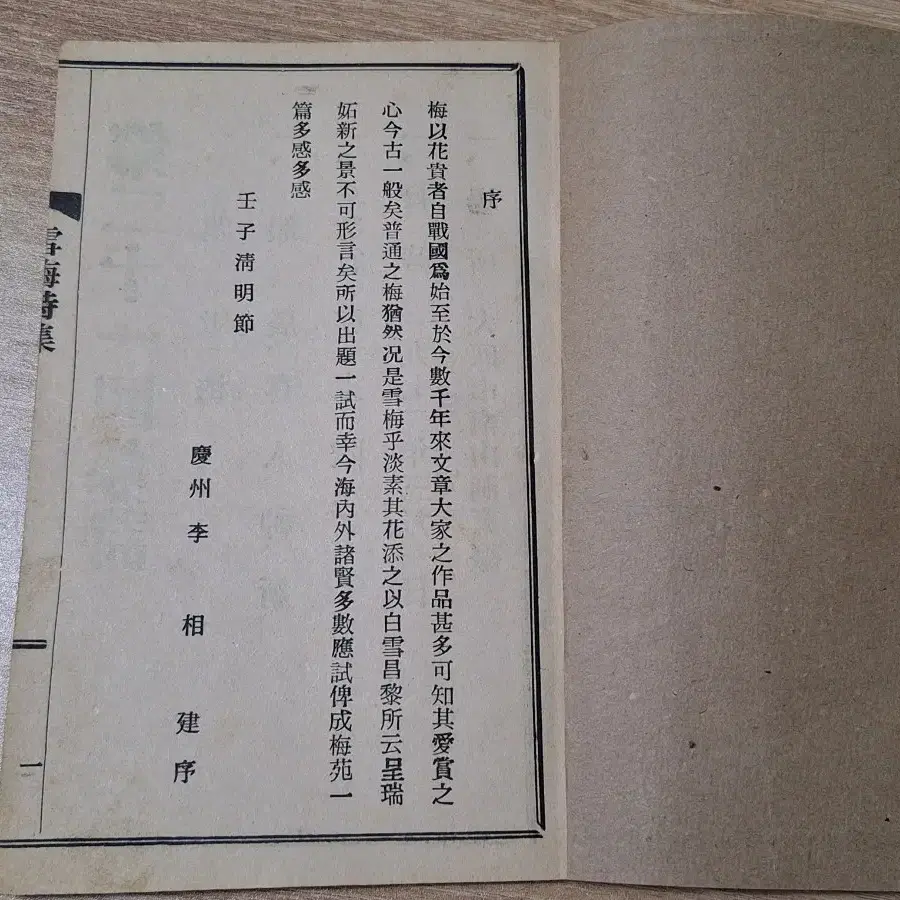 序
梅以花貴者自戰國爲始至於今數千年來文章大家之作品甚多可知其愛賞之
心今古一般矣普通之梅猶然况是雪梅乎淡素其花添之以白雪昌黎所云呈瑞
妬新之景不可形言矣所以出題一試而幸今海內外諸賢多數應試俾成梅苑一
篇多感多感
壬子淸明節
慶州李相建序
雪梅詩集
一